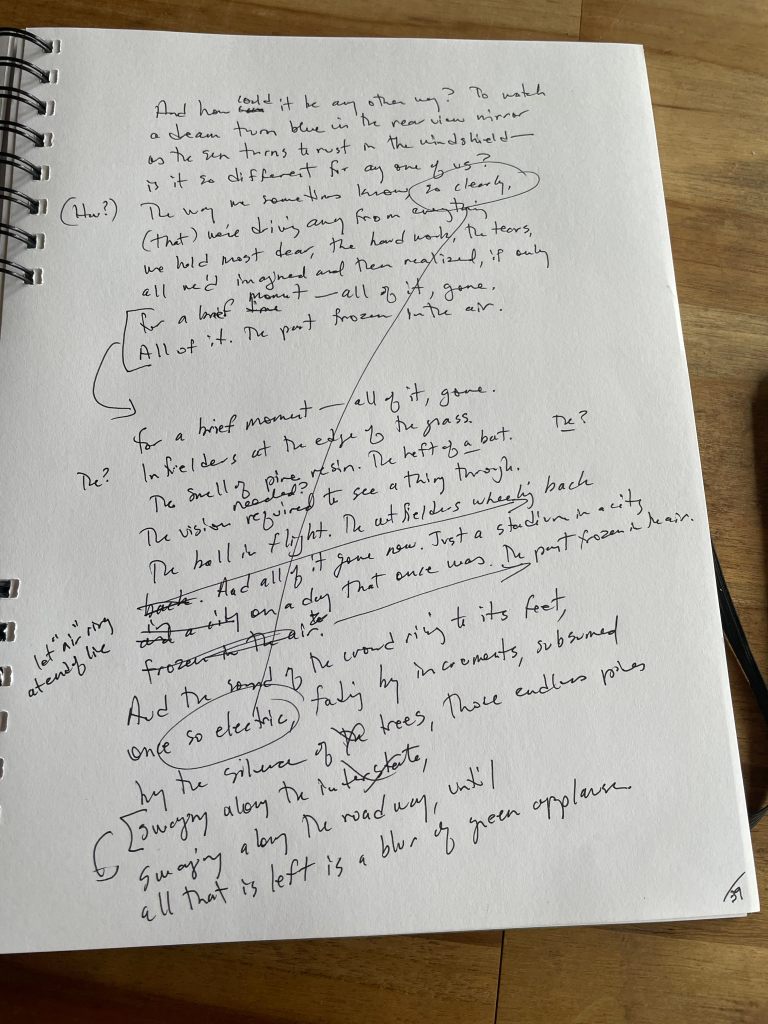 And how could it be any other way? To watch
a dream turn blue in the rear view mirror
as the sun turns to rust in the windshield—
is it so different for any one of us?
(How?) The way we sometimes know, so clearly,
(that) we're driving away from everything
we hold most dear, the hard work, the tears,
all we'd imagined and then realized, if only
for a brief moment — all of it, gone.
All of it. The past frozen in the air.
for a brief moment — all of it, gone.
The? Infielders at the edge of the grass. The?
The smell of pine resin. The heft of a bat.
needed?
The vision required to see a thing through.
The ball in flight. The outfielders wheeling back
back. And all of it gone now. Just a stadium in a city
and a city on a day that once was. The past frozen in the air.
frozen in the air.
let "air" ring
at end of line
And the sound of the crowd rising to its feet,
once so electric, fading by increments, subsumed
by the silence of the trees, those endless pines
swaying along the interstate,
swaying along the roadway, until
all that is left is a blur of green applause
39